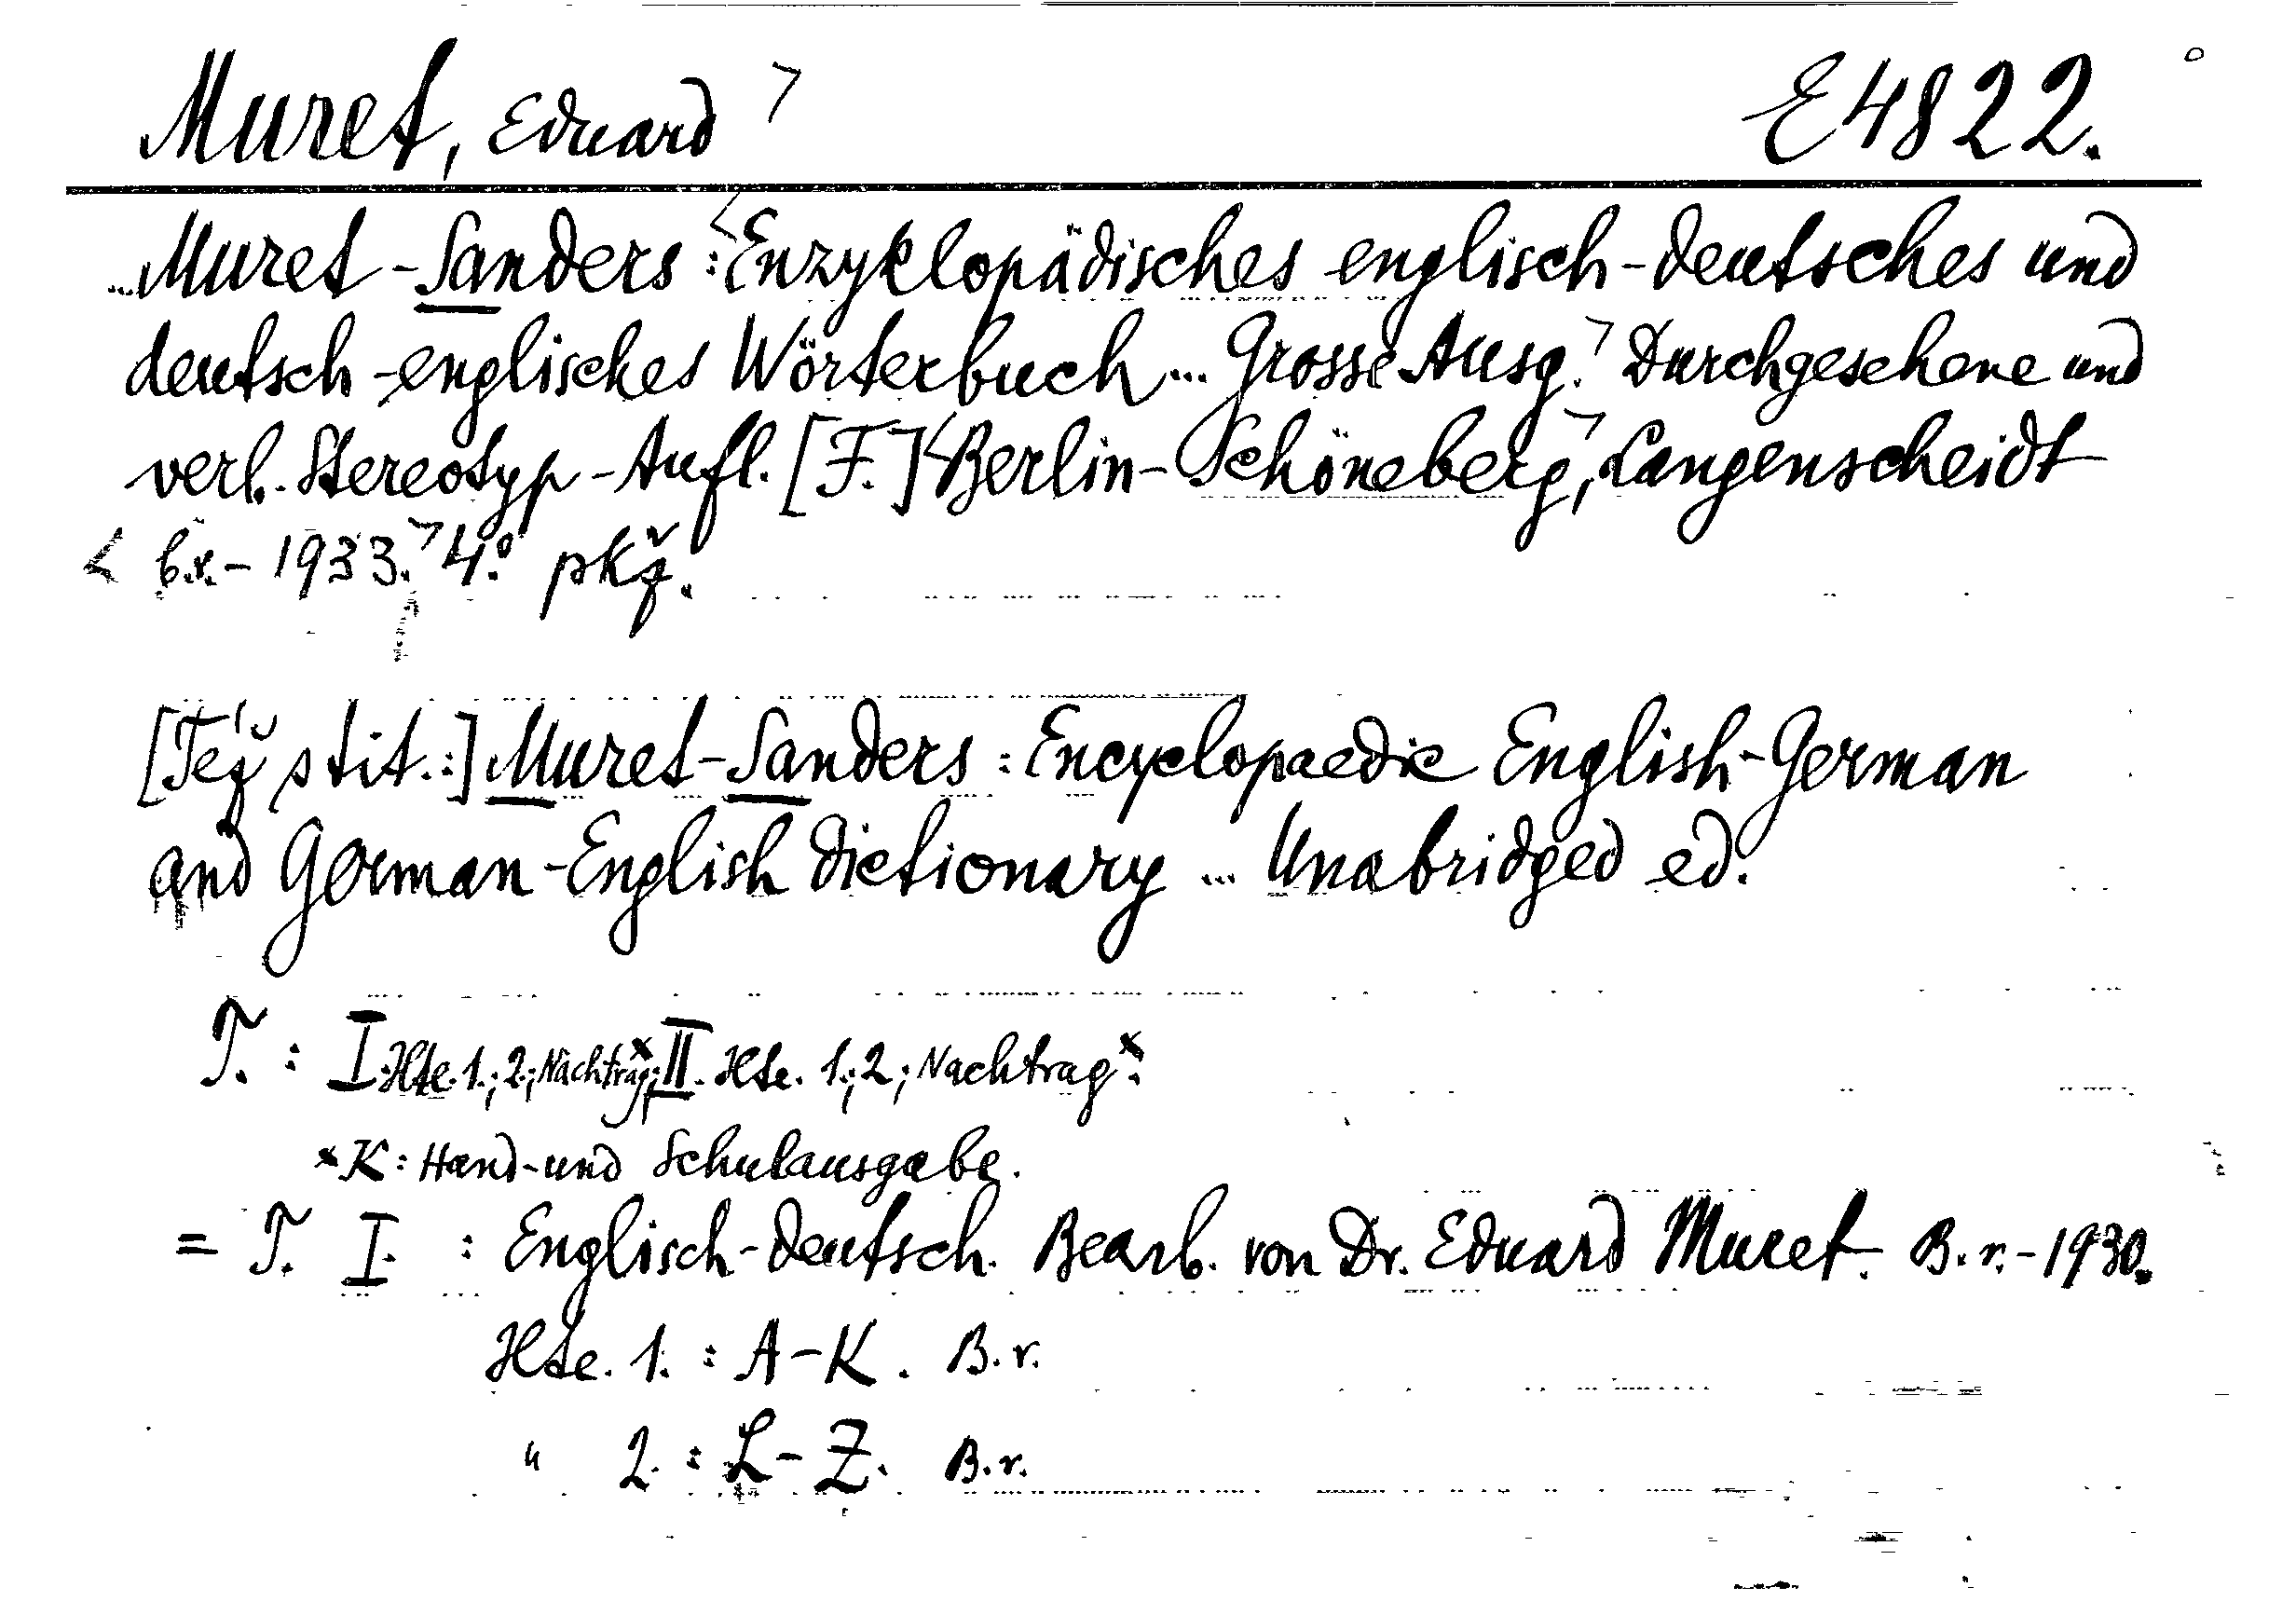 Muret, Eduard > E 4822.
... Muret-Sanders: <Enzyklopädisches englisch-deutsches und
deutsch-englisches Wörterbuch ... Grosse Ausg.> Durchgesehene und
verb. Stereotyp-Aufl. [F.] <Berlin-Schöneberg>, Langenscheidt
< b.r.-1933.> 4° pkž.
[Též s tit.:] Muret-Sanders: Encyclopaedic English-German
and German-English dictionary ... Unabridged ed.
T. : I. Hte. 1.; 2.; Nachtrag*; II. Hte. 1.; 2.; Nachtrag*.
*K: Hand- und Schulausgabe.
= T. I. : Englisch-deutsch. Bearb. von Dr. Eduard Muret. B.r.-1930.
Hte. 1. : A-K. B.r.
" 2. : L-Z. B.r.